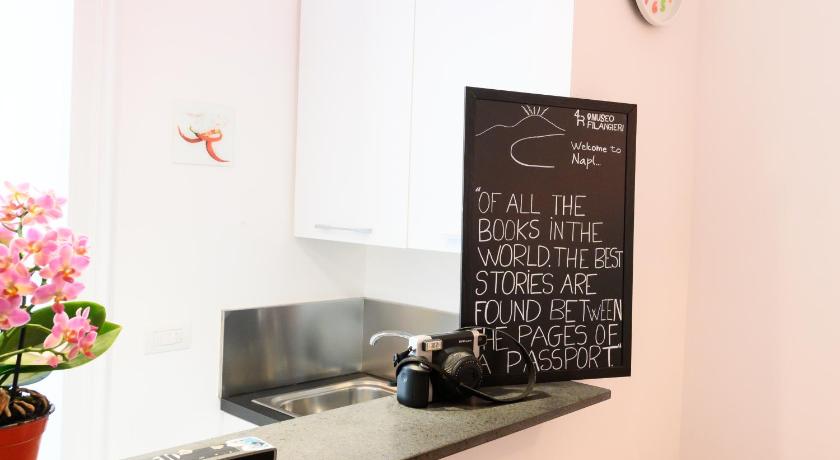 4R @MUSEO
FILANGIERI
Welcome to
Napl...
"OF ALL THE
BOOKS IN THE
WORLD. THE BEST
STORIES ARE
FOUND BETWEEN
THE PAGES OF
A PASSPORT."